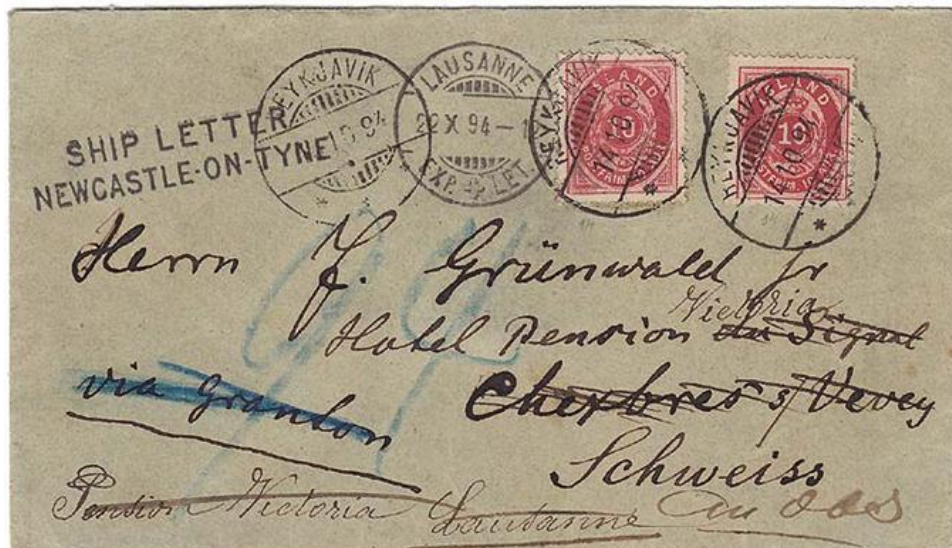 SHIP LETTER
NEWCASTLE-ON-TYNE
REYKJAVIK
LAUSANNE
22 X 94
EXP. LET.
REYKJAVIK
14.10.
ISLAND
10
REYKJAVIK
14.10.94
ISLAND
10
Herrn J. Grünwald Jr
Victoria
Hotel Pension du Signal
via Granton
Chexbres s/Vevey
Schweiss
Pension Victoria Lausanne